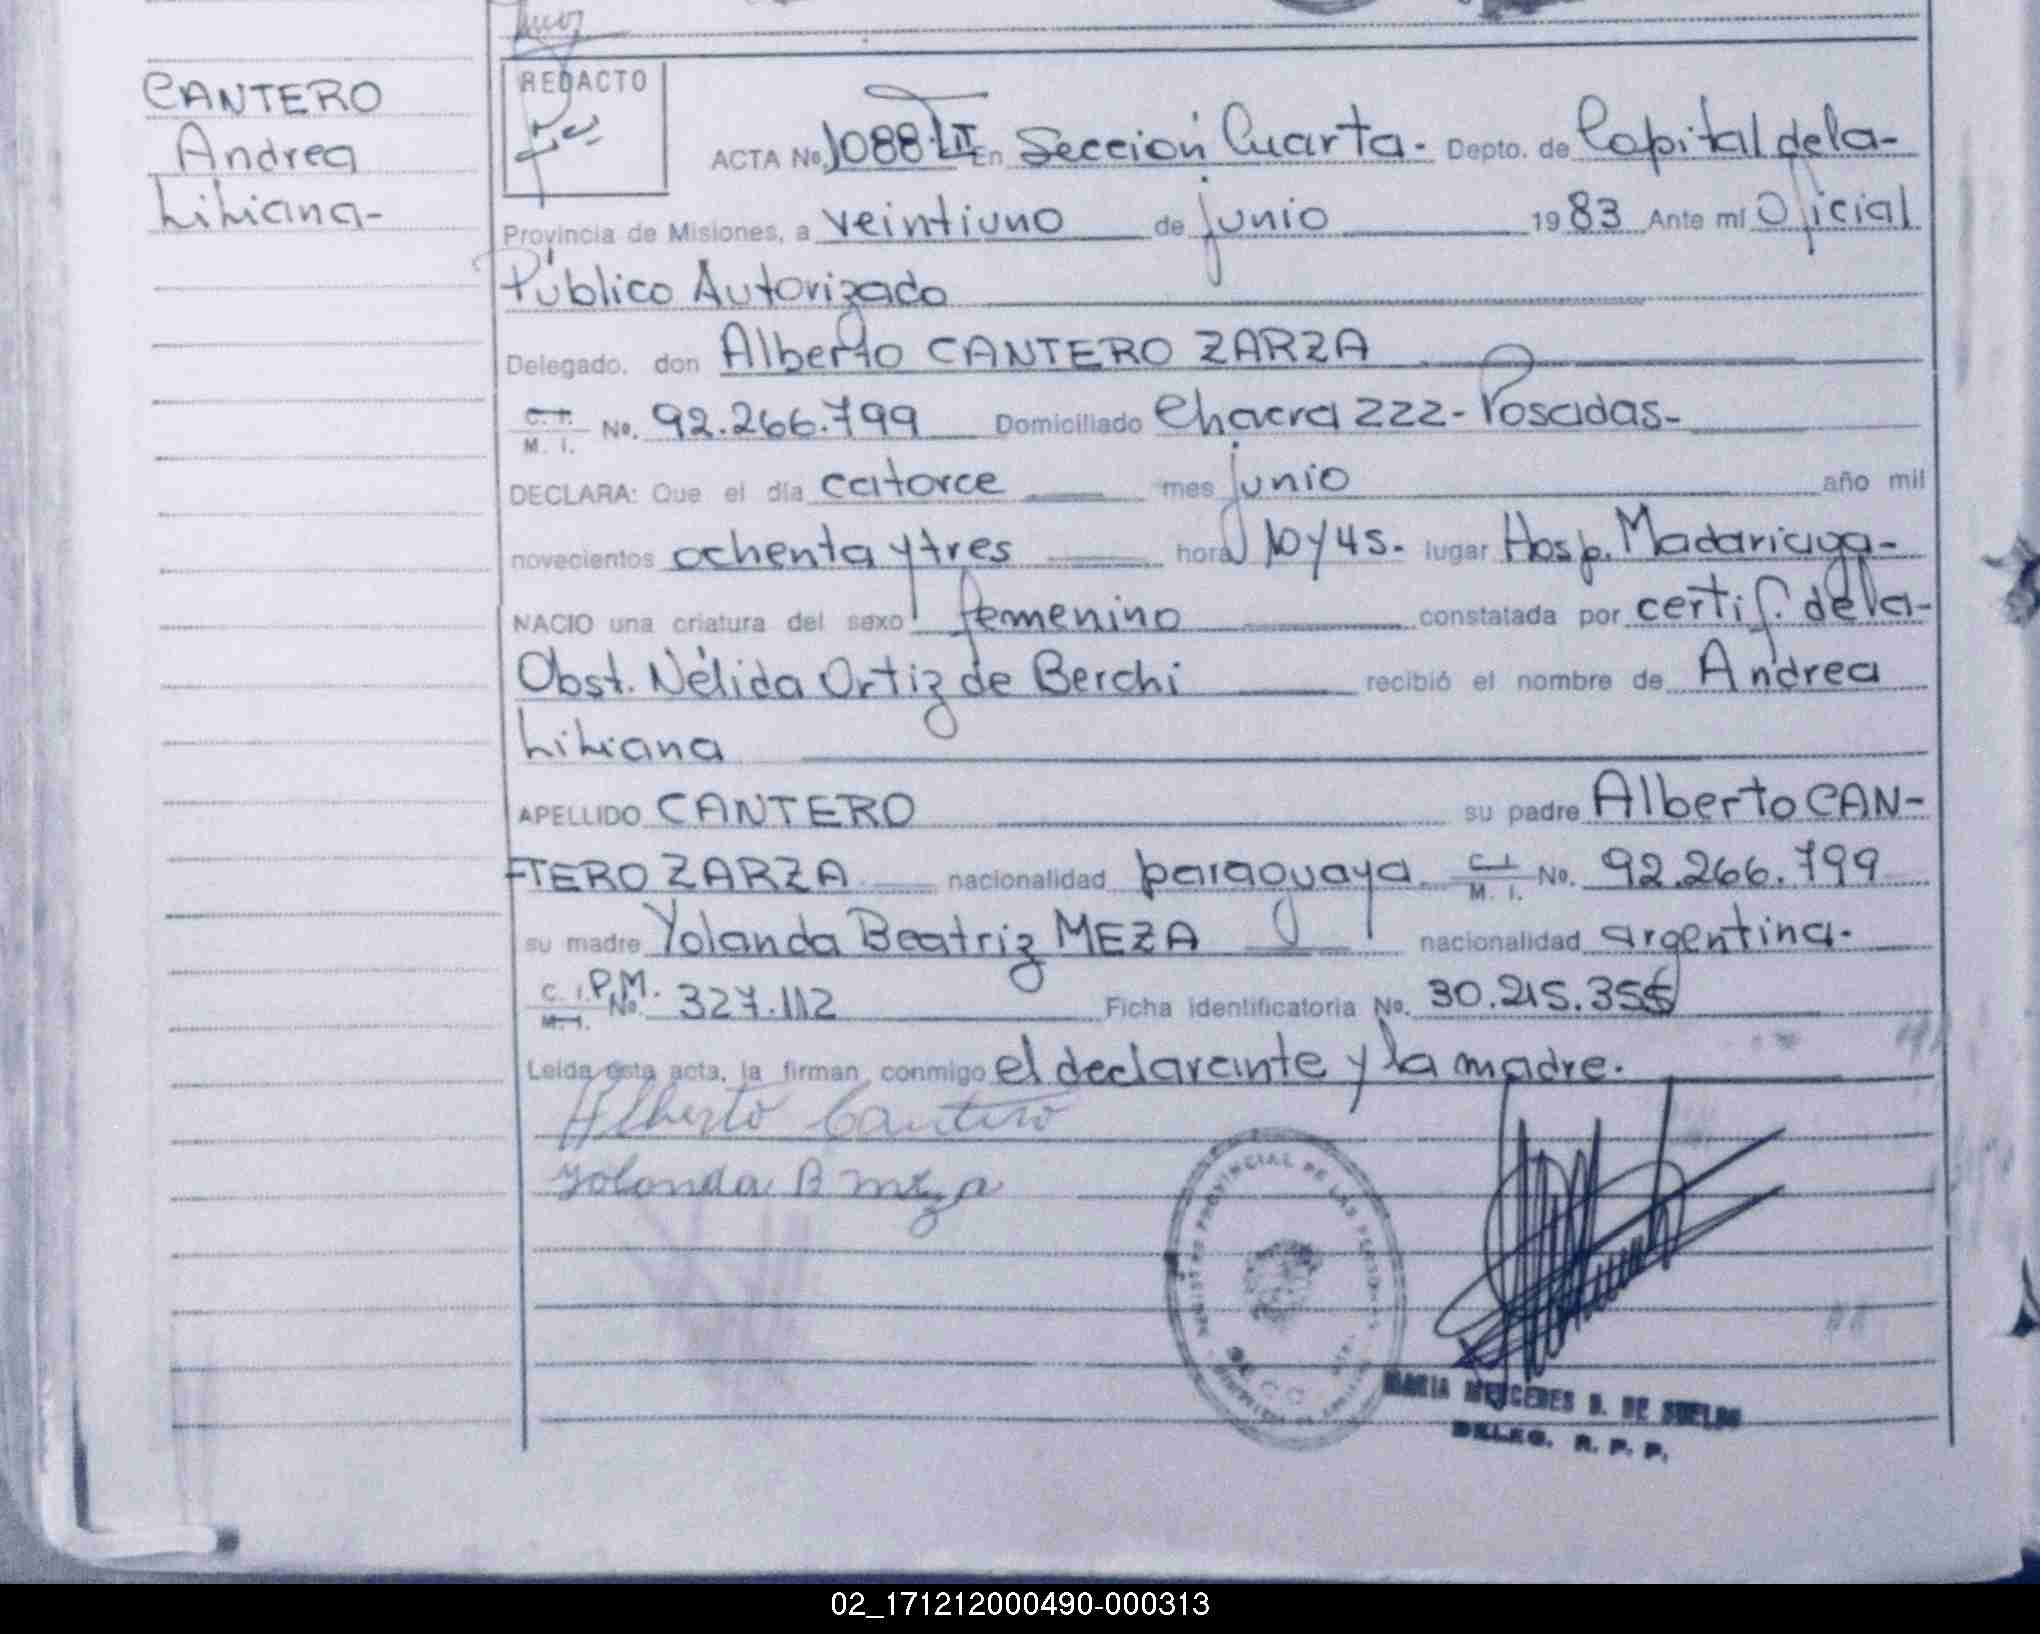 CANTERO
Andrea
Liliana-
REDACTO
ACTA No. 1088 TII En Sección Cuarta. Depto. de Capital de la-
Provincia de Misiones, a veintiuno de junio 1983 Ante mí Oficial
Público Autorizado
Delegado, don Alberto CANTERO ZARZA
C. I. M. I. No. 92.266.799 Domiciliado Chacra 222- Posadas-
DECLARA: Que el día catorce mes junio año mil
novecientos ochenta y tres hora 10 y 45. lugar Hosp. Madariaga-
NACIO una criatura del sexo femenino constatada por certif. de la-
Obst. Nélida Ortiz de Berchi recibió el nombre de Andrea
Liliana
APELLIDO CANTERO su padre Alberto CAN-
TERO ZARZA nacionalidad paraguaya C. I. M. I. No. 92.266.799
su madre Yolanda Beatriz MEZA nacionalidad argentina.
C. I. M. I. P.M. No. 327.112 Ficha identificatoria No. 30.215.355
Leída esta acta, la firman conmigo el declarante y la madre.
Alberto Cantero
Yolanda B meza
PROVINCIAL DE LAS PERSONAS
MARIA MERCEDES B. DE SUELDO
DELEG. R. P. P.
02_171212000490-000313